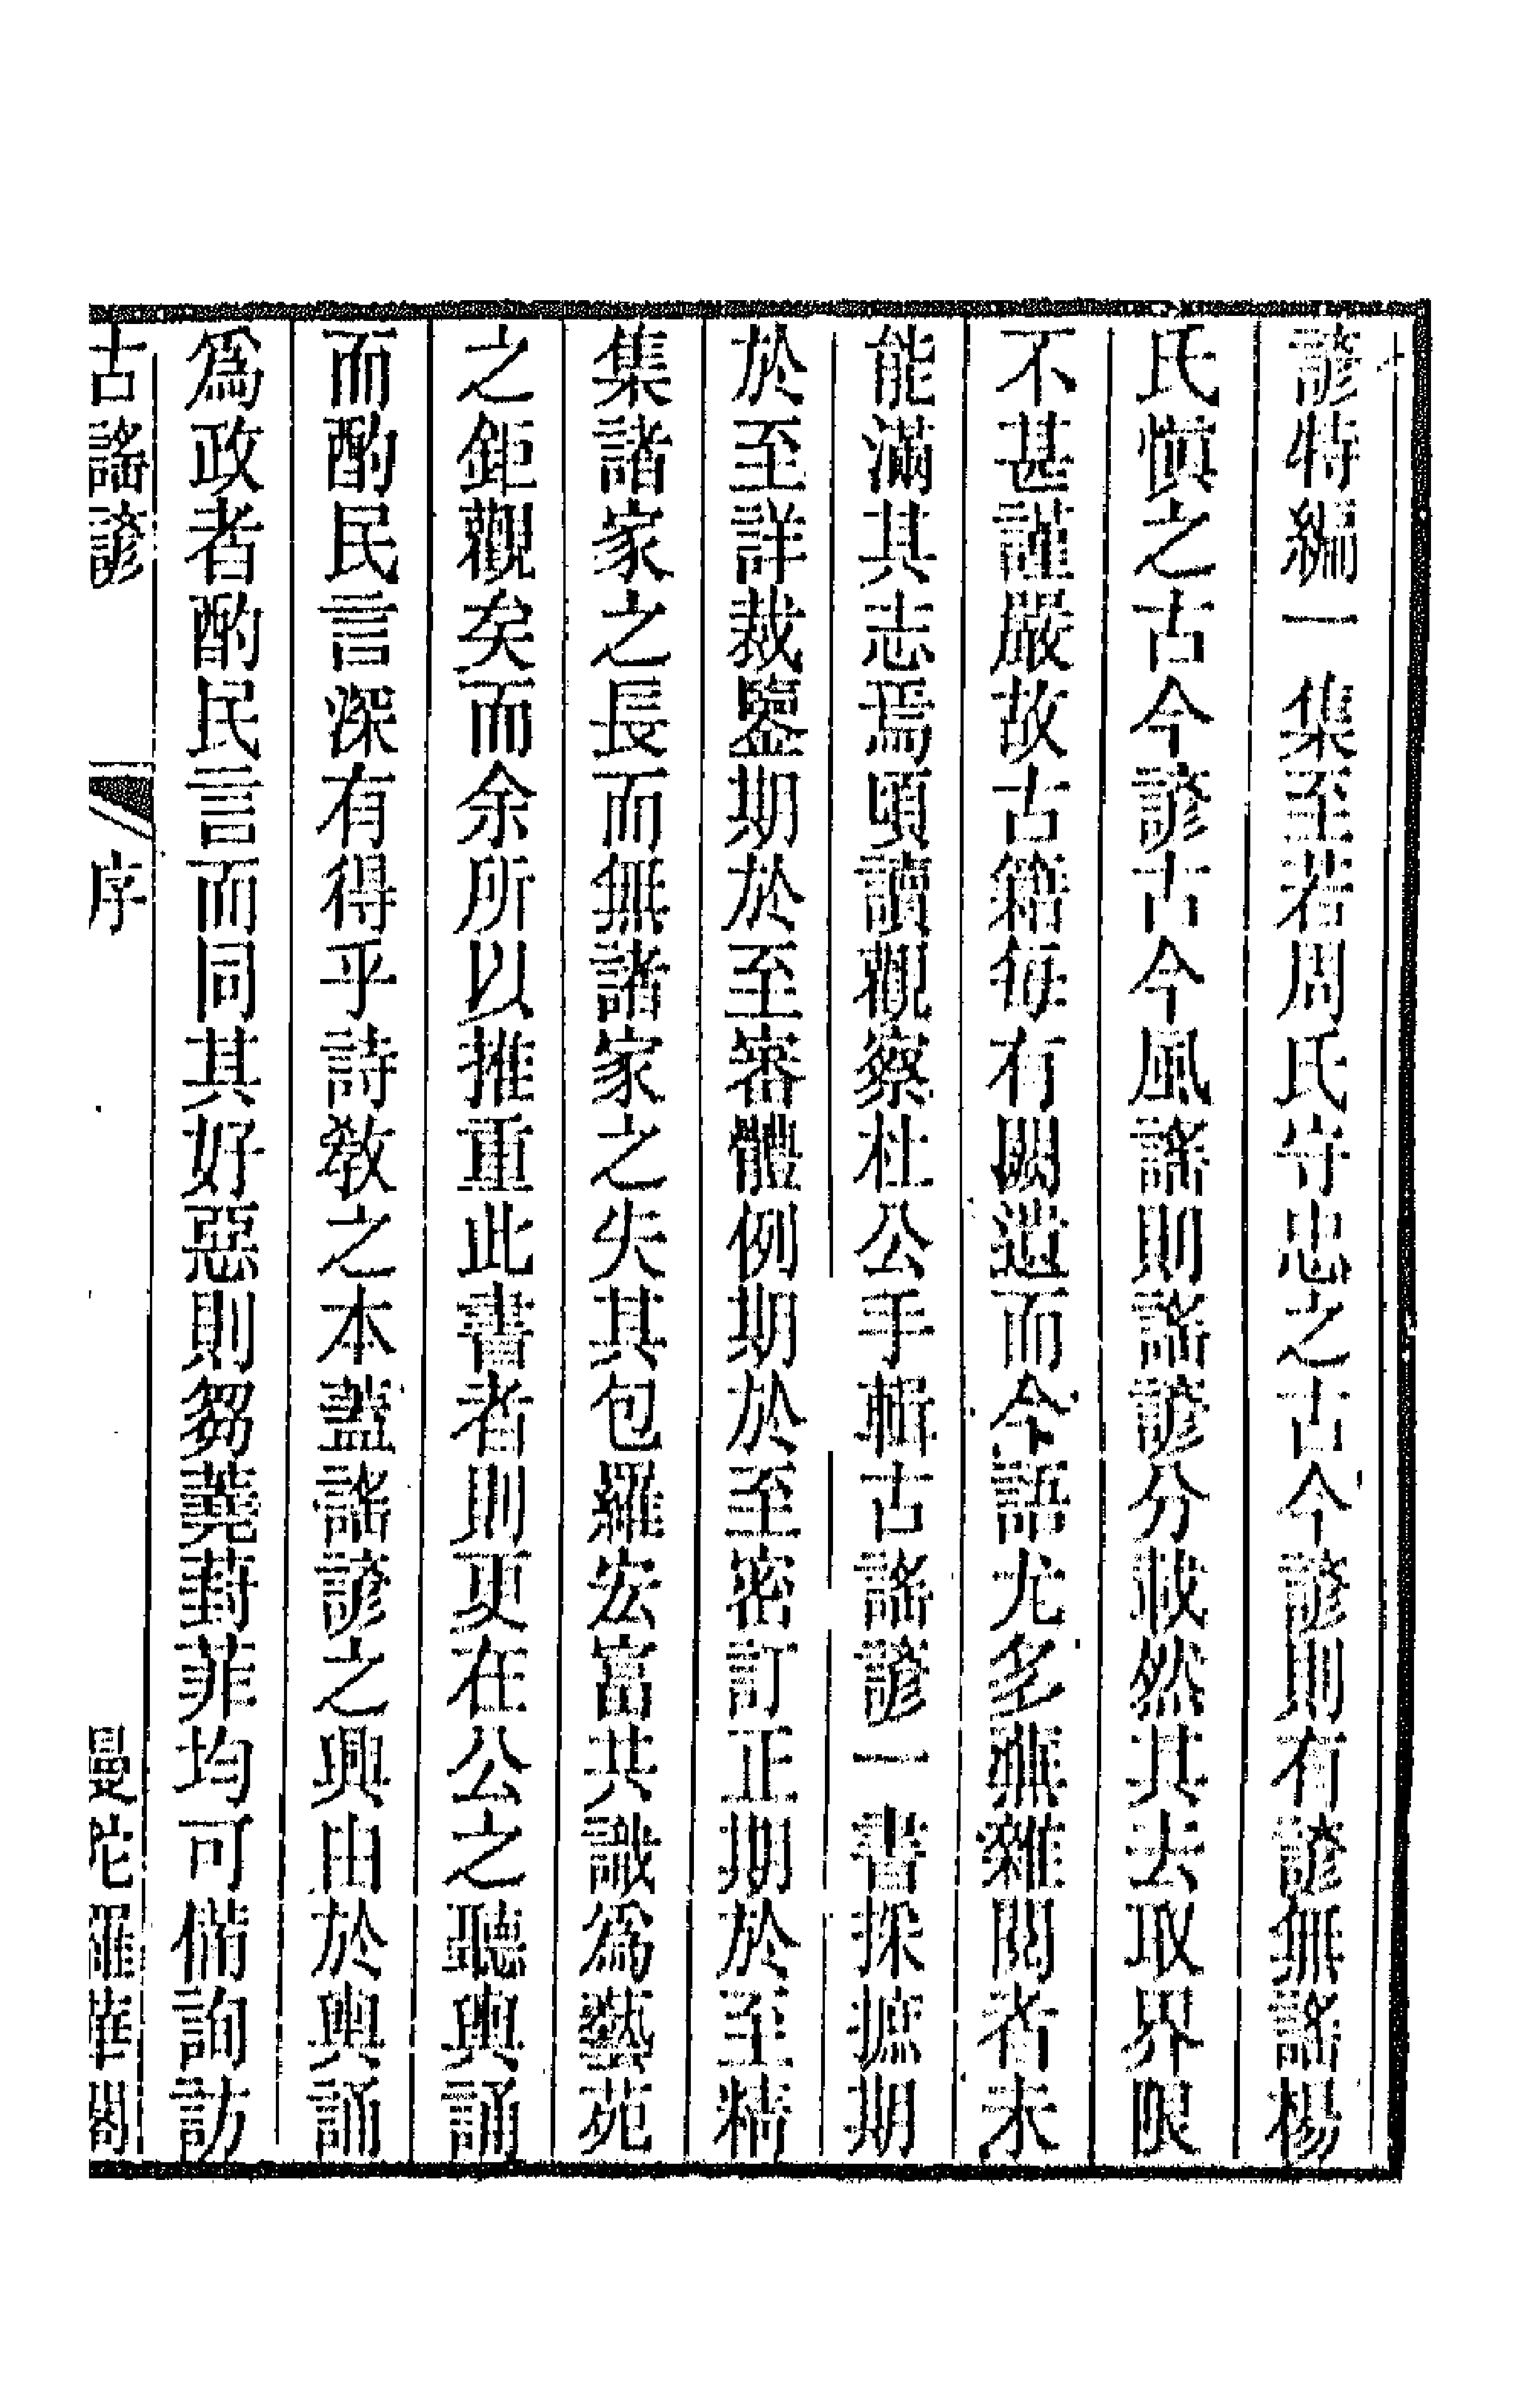 諺特編一集至若周氏守忠之古今諺則有諺無謠楊
氏慎之古今諺古今風謠則謠諺分載然其去取界限
不甚謹嚴故古籍每有闕遺而今語尤多蕪雜閱者未
能滿其志焉頃讀觀察杜公手輯古謠諺一書採摭期
於至詳裁鑒期於至審體例期於至密訂正期於至精
集諸家之長而無諸家之失其包羅宏富共識為藝苑
之鉅觀矣而余所以推重此書者則更在公之聽輿誦
而酌民言深有得乎詩教之本蓋謠諺之興由於輿誦
為政者酌民言而同其好惡則芻蕘葑菲均可備詢訪
古謠諺 序 曼陀羅華閣